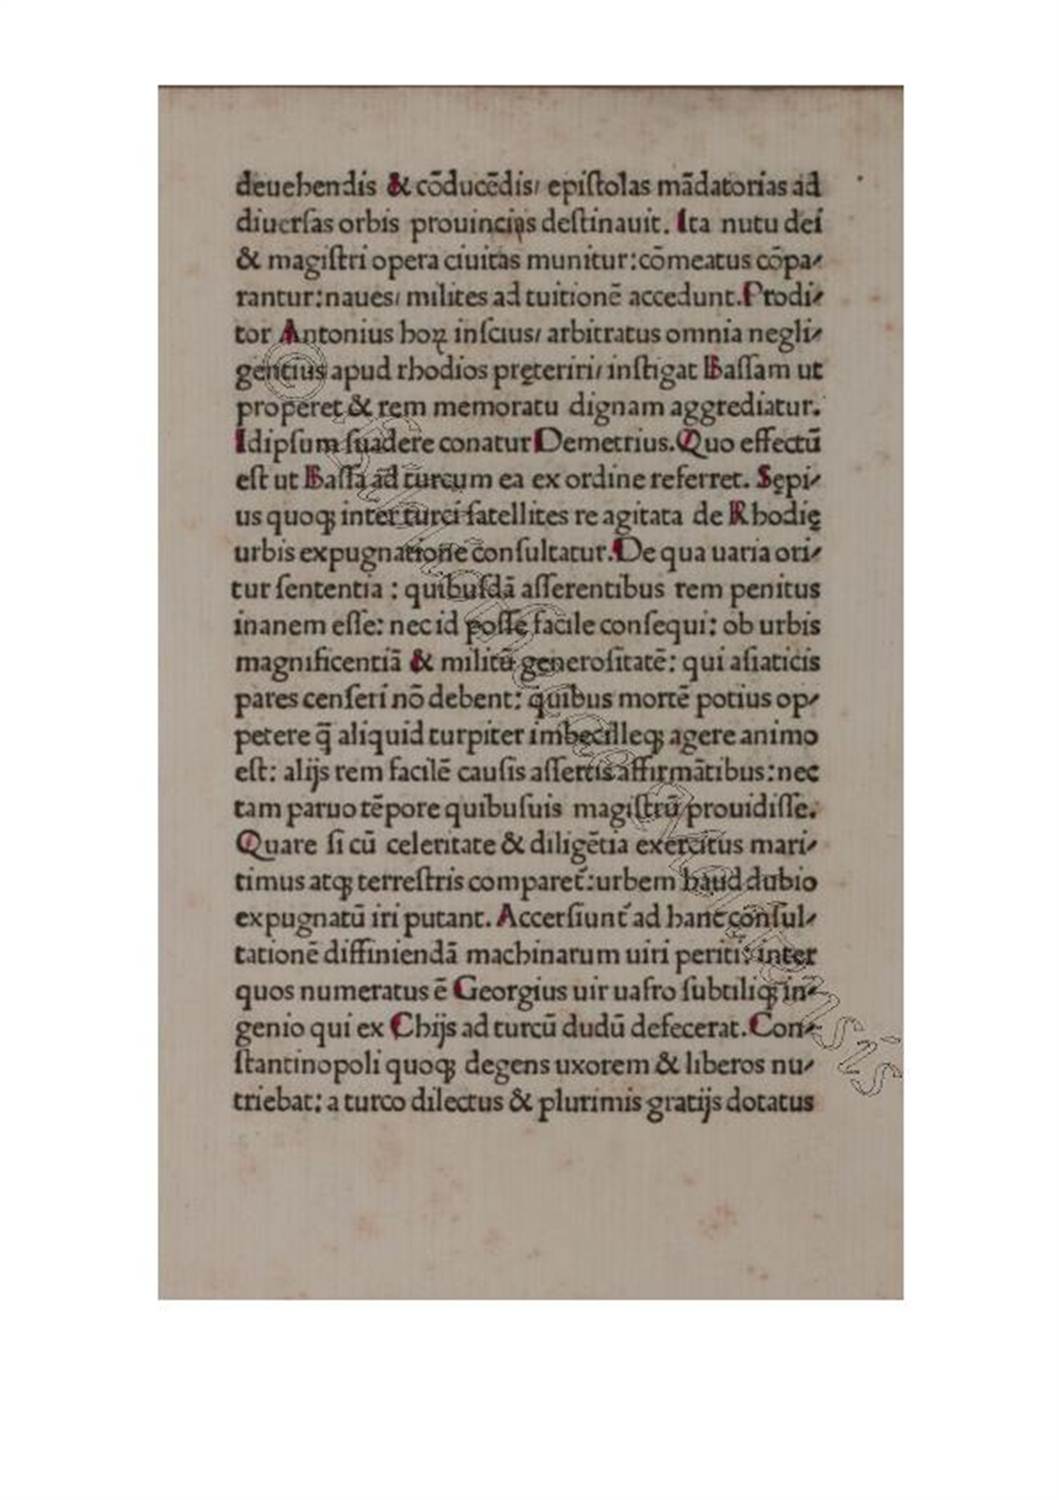 deuehendis & cōducēdis/ epiſtolas mādatorias ad
diuerſas orbis prouincias deſtinauit. Ita nutu dei
& magiſtri opera ciuitas munitur: cōmeatus cōpa⸗
rantur: naues/ milites ad tuitionē accedunt. Prodi⸗
tor Antonius hoꝝ inſcius/ arbitratus omnia negli⸗
gentius apud rhodios pręteriri/ inſtigat Baſſam ut
properet & rem memoratu dignam aggrediatur.
Idipſum ſuadere conatur Demetrius. Quo effectū
eſt ut Baſſa ad turcum ea ex ordine referret. Sępi⸗
us quoqꝫ inter turci ſatellites re agitata de Rhodię
urbis expugnatione conſultatur. De qua uaria ori⸗
tur ſententia : quibuſdā aſſerentibus rem penitus
inanem eſſe: nec id poſſe facile conſequi: ob urbis
magnificentiā & militū generoſitatē: qui aſiaticis
pares cenſeri nō debent: quibus mortē potius op⸗
petere q̄ aliquid turpiter imbecilleqꝫ agere animo
eſt: alijs rem facilē cauſis aſſertis affirmātibus: nec
tam paruo tēpore quibuſuis magiſtrū prouidiſſe.
Quare ſi cū celeritate & diligētia exercitus mari⸗
timus atqꝫ terreſtris comparet᷑: urbem haud dubio
expugnatū iri putant. Accerſiunt᷑ ad hanc conſul⸗
tationē diffiniendā machinarum uiri periti: inter
quos numeratus ē Georgius uir uafro ſubtiliqꝫ in⸗
genio qui ex Chijs ad turcū dudū defecerat. Con⸗
ſtantinopoli quoqꝫ degens uxorem & liberos nu⸗
triebat: a turco dilectus & plurimis gratijs dotatus